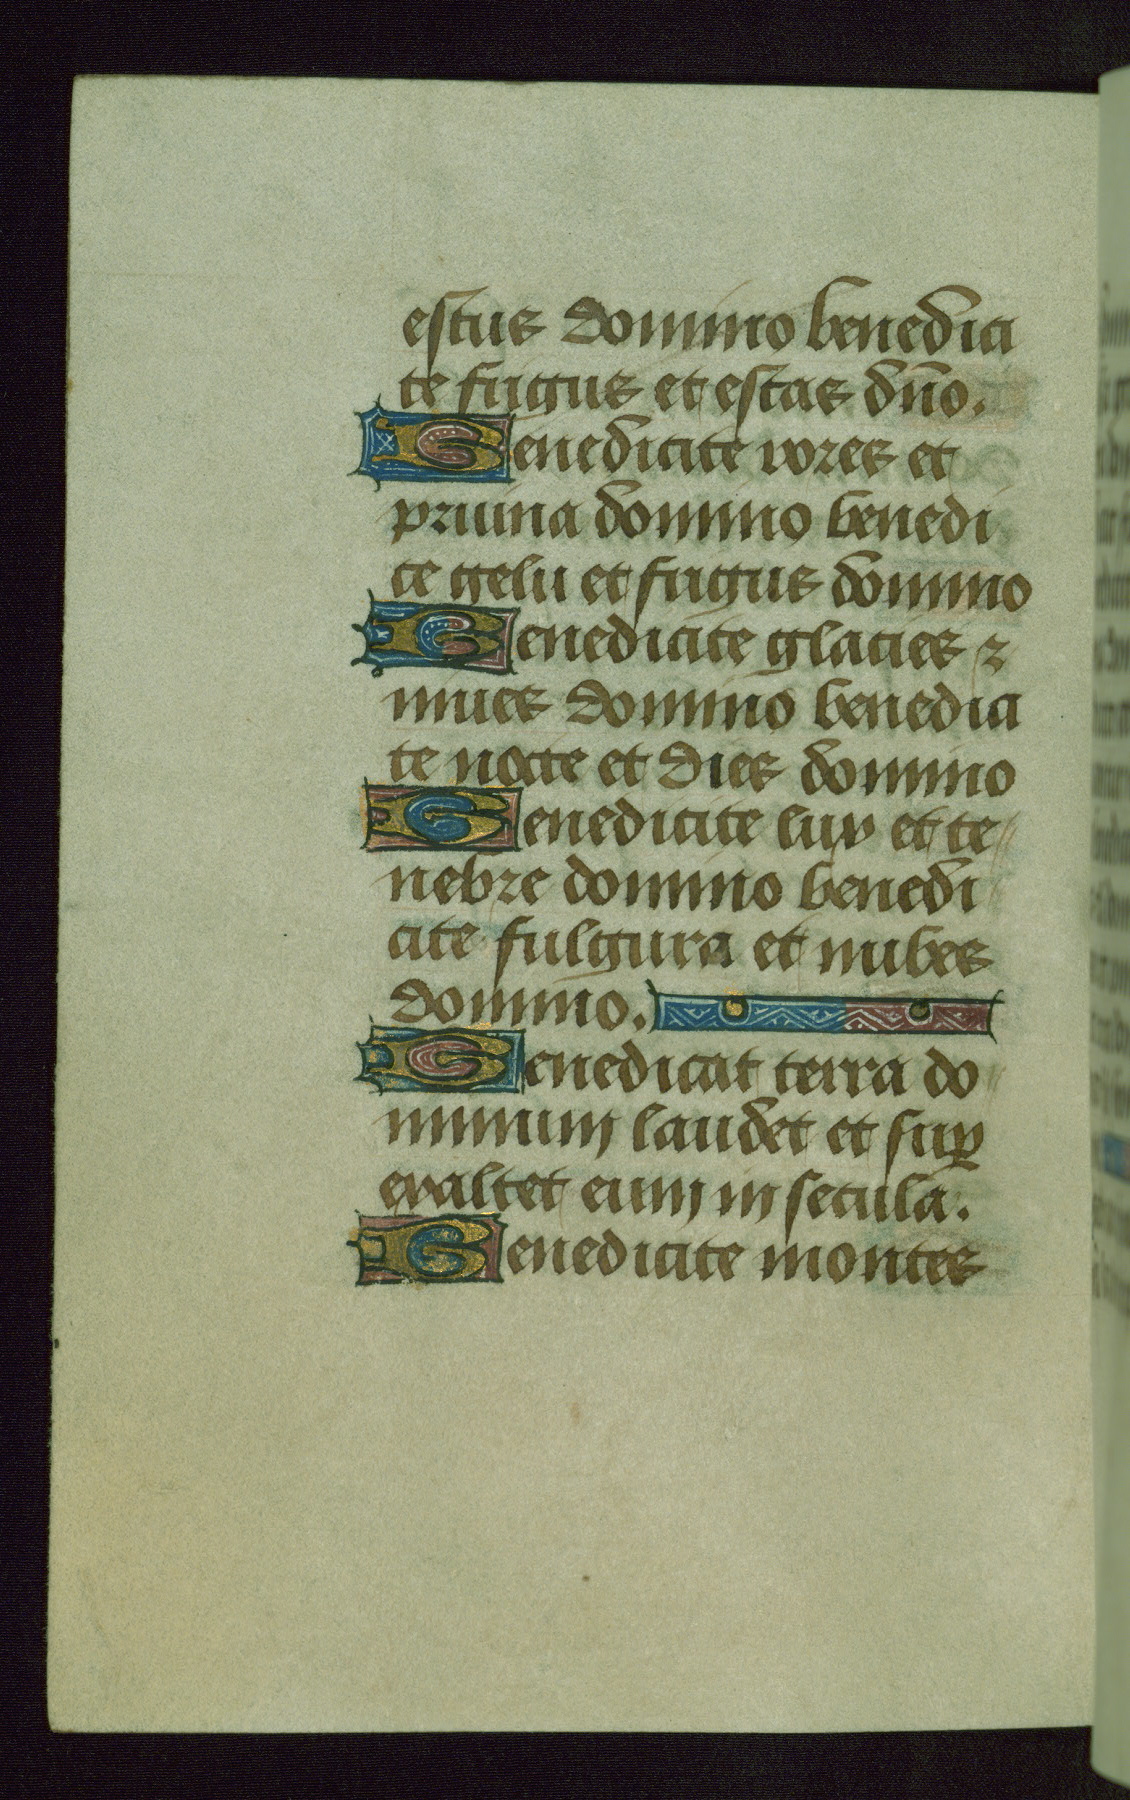 estus domino benedici
te frigus et estas dn̄o.
Benedicite rores et
pruina domino benedi
te gelu et frigus domino
Benedicite glacies ⁊
niues domino benedici
te nocte et dies domino
Benedicite lux et te
nebre domino benedi
cite fulgura et nubes
domino.
Benedicat terra do
minum laudet et suꝑ
exaltet eum in secula.
Benedicite montes